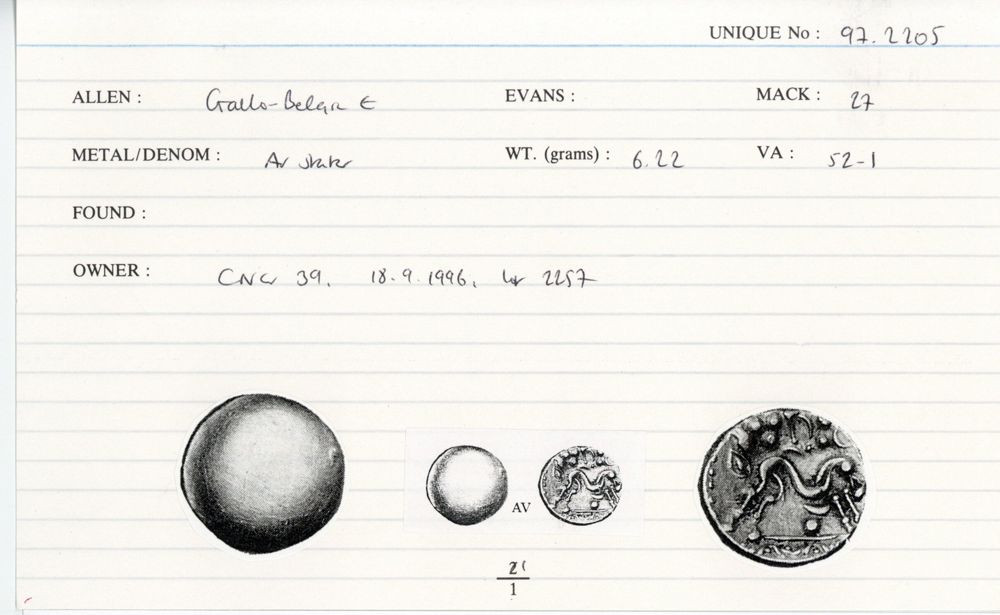 UNIQUE No : 97.2205
ALLEN : Gallo-Belgic E EVANS : MACK : 27
METAL/DENOM : AV stater WT. (grams) : 6.22 VA : 52-1
FOUND :
OWNER : CNG 39, 18.9.1996, lot 2257
AV
1